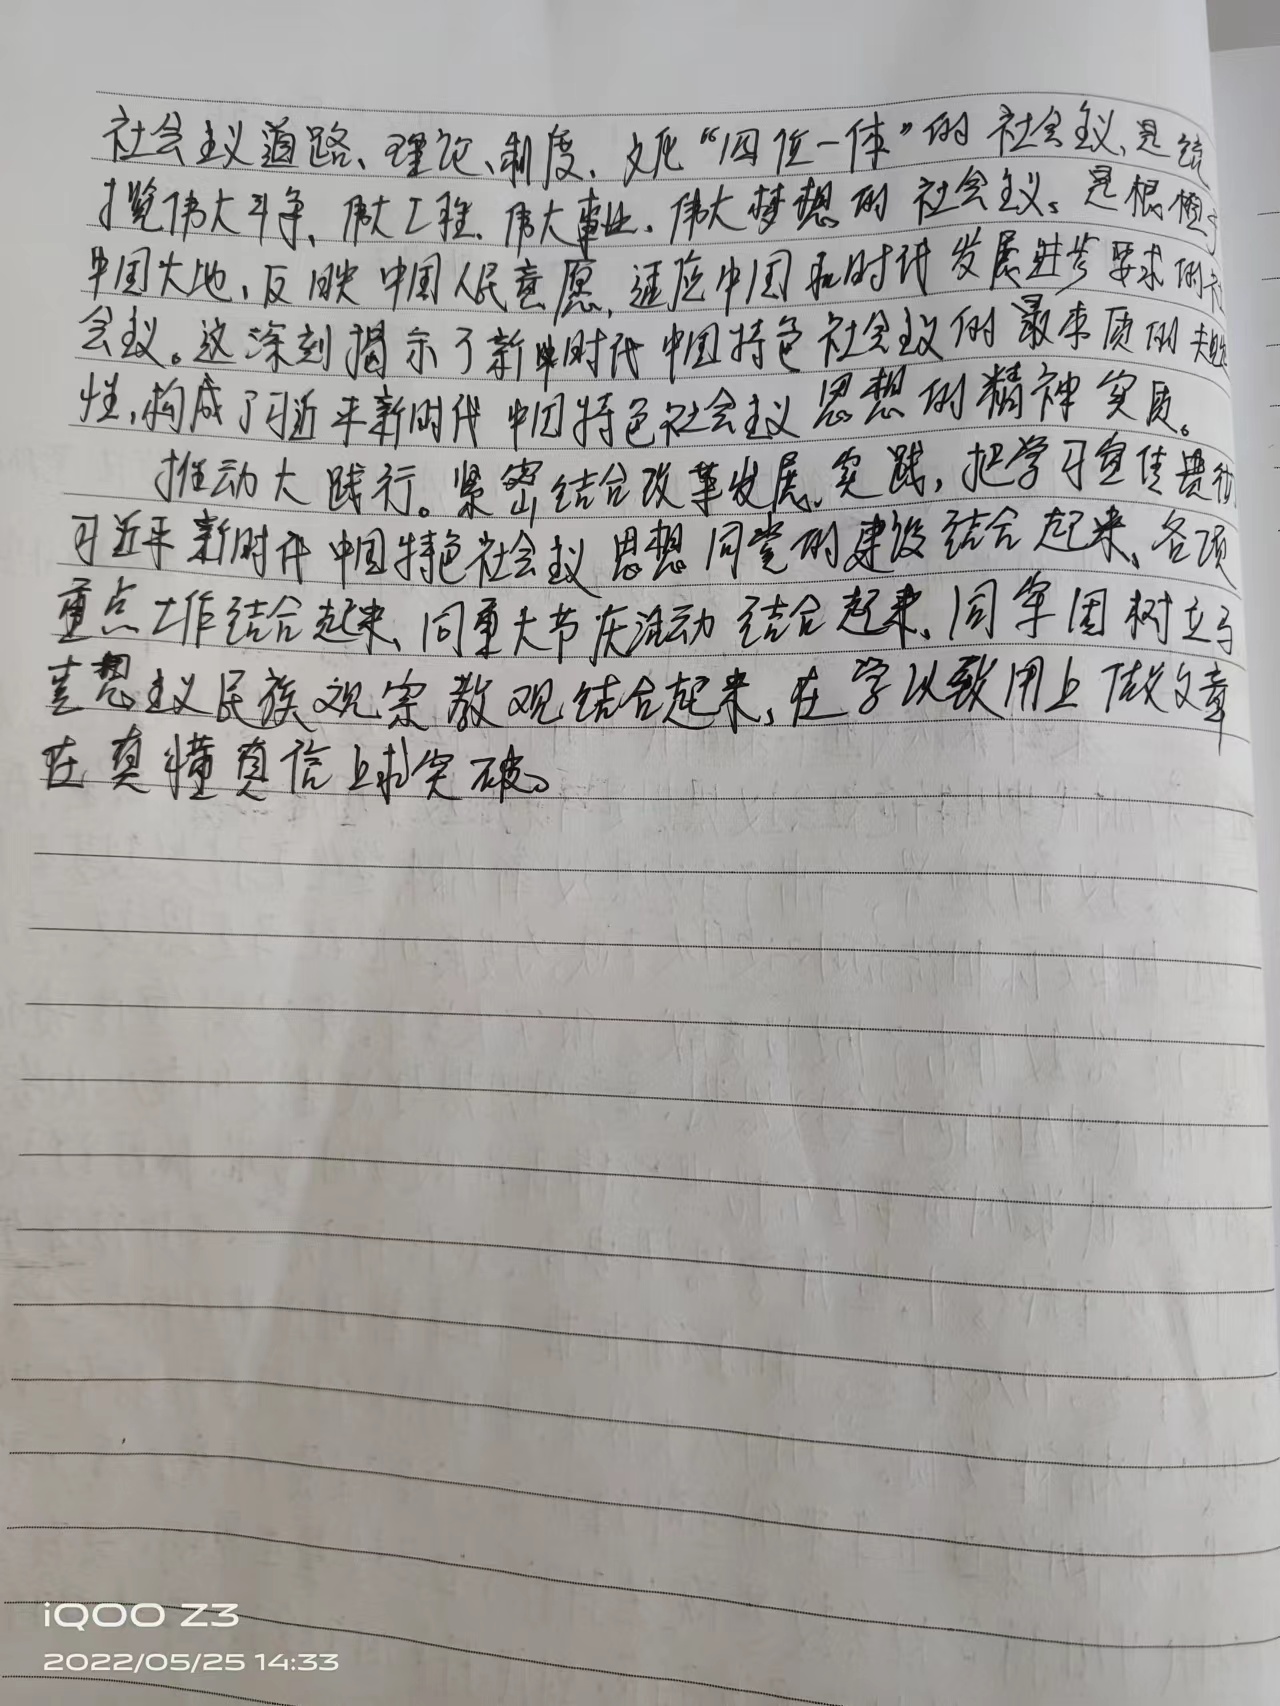 社会主义道路、理论、制度、文化“四位一体”的社会主义、是统
揽伟大斗争、伟大工程、伟大事业、伟大梦想的社会主义、是根植于
中国大地、反映中国人民意愿,适应中国和时代发展进步要求的社
会主义。这深刻揭示了新时代中国特色社会主义的最本质的
性,构成了习近平新时代中国特色社会主义思想的精神实质。
推动大践行。紧密结合改革发展、实践,把学习宣传贯彻
习近平新时代中国特色社会主义思想同党的建设结合起来、各项
重点工作结合起来、同重大节庆活动结合起来、同牢固树立马
主义民族观宗教观结合起来,在学以致用上做文章
在真懂真信上求突破。
iQOO Z3
2022/05/25 14:33